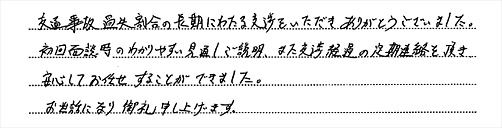 交通事故 過失割合の長期にわたる交渉をいただき ありがとうございました。
初回面談時のわかりやすい見通しご説明、また交渉経過の定期連絡を頂き、
安心してお任せすることができました。
お世話になり 御礼申し上げます。